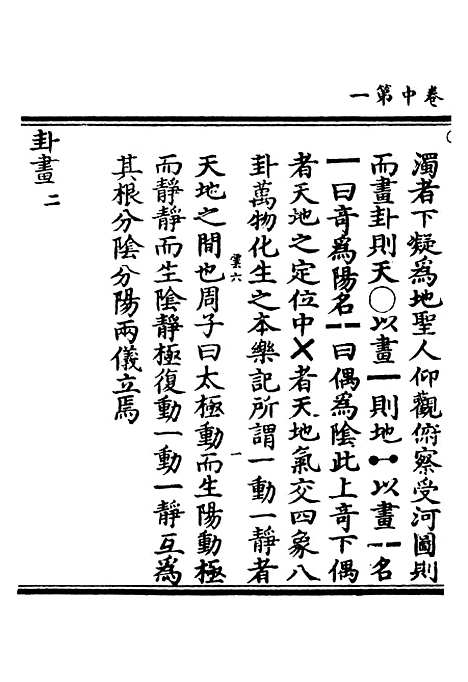 卷中第一
濁者下凝爲地聖人仰觀俯察受河圖則
而畫卦則天○以畫一則地●●以畫⚋名
一曰奇爲陽名⚋曰偶爲陰此上奇下偶
者天地之定位中乂者天地氣交四象八
卦萬物化生之本樂記所謂一動一靜者
彙六
一
天地之間也周子曰太極動而生陽動極
而靜靜而生陰靜極復動一動一靜互爲
其根分陰分陽兩儀立焉
卦畫二